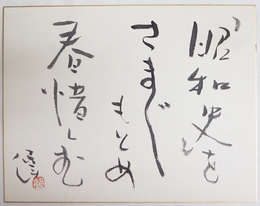 昭和史を
さま〲
もとめ
春惜しむ